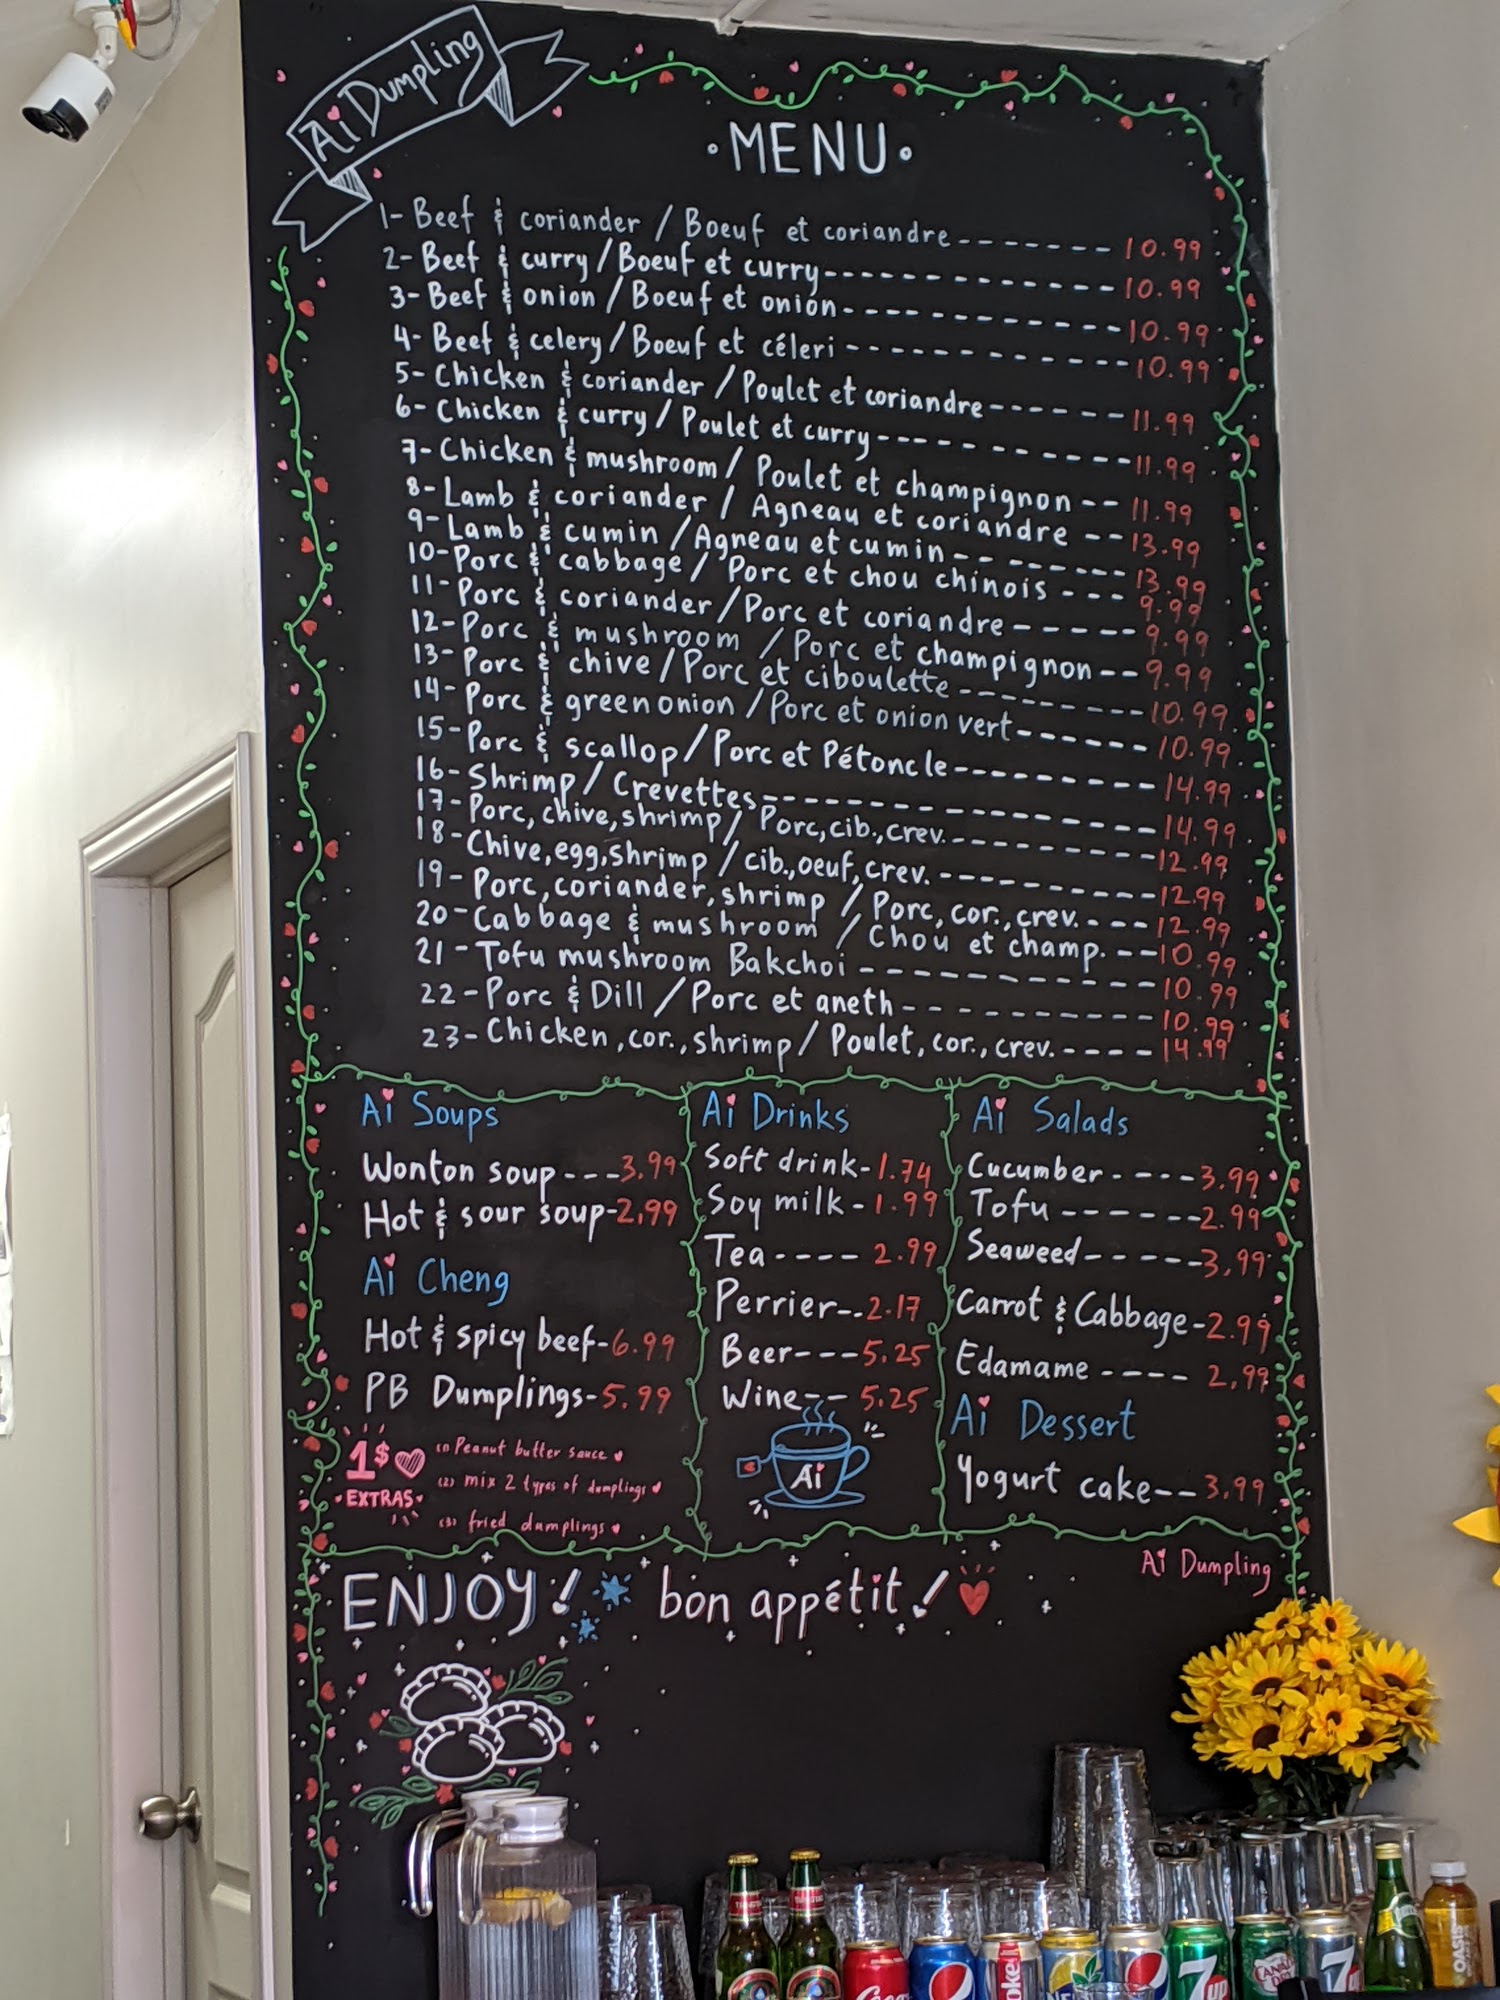 Ai Dumpling
·MENU·
1- Beef & coriander / Boeuf et coriandre ------- 10.99
2- Beef & curry / Boeuf et curry -------------- 10.99
3- Beef & onion / Boeuf et onion ------------- 10.99
4- Beef & celery / Boeuf et céleri ------------- 10.99
5- Chicken & coriander / Poulet et coriandre ------ 11.99
6- Chicken & curry / Poulet et curry ----------- 11.99
7- Chicken & mushroom / Poulet et champignon -- 11.99
8- Lamb & coriander / Agneau et coriandre -- 13.99
9- Lamb & cumin / Agneau et cumin ------- 13.99
10- Porc & cabbage / Porc et chou chinois --- 9.99
11- Porc & coriander / Porc et coriandre ----- 9.99
12- Porc & mushroom / Porc et champignon -- 9.99
13- Porc & chive / Porc et ciboulette -------- 10.99
14- Porc & green onion / Porc et onion vert ------ 10.99
15- Porc & scallop / Porc et Pétoncle -------- 14.99
16- Shrimp / Crevettes ---------------- 14.99
17- Porc, chive, shrimp / Porc, cib., crev. --------- 12.99
18- Chive, egg, shrimp / cib., oeuf, crev. ---------- 12.99
19- Porc, coriander, shrimp / Porc, cor., crev. ---- 12.99
20- Cabbage & mushroom / Chou et champ. -- 10.99
21- Tofu mushroom Bakchoi ----------- 10.99
22- Porc & Dill / Porc et aneth ---------- 10.99
23- Chicken, cor., shrimp / Poulet, cor., crev. ---- 14.99
Ai Soups
Wonton soup --- 3.99
Hot & sour soup - 2.99
Ai Cheng
Hot & spicy beef - 6.99
PB Dumplings - 5.99
1$
EXTRAS
(1) Peanut butter sauce
(2) mix 2 types of dumplings
(3) fried dumplings
Ai Drinks
Soft drink - 1.74
Soy milk - 1.99
Tea ---- 2.99
Perrier --- 2.17
Beer --- 5.25
Wine -- 5.25
Ai
Ai Salads
Cucumber ---- 3.99
Tofu ------- 2.99
Seaweed ----- 3.99
Carrot & Cabbage - 2.99
Edamame ---- 2.99
Ai Dessert
Yogurt cake -- 3.99
Ai Dumpling
ENJOY! bon appétit!
TSINGTAO
TSINGTAO
Coke
7UP
CANADA DRY
7UP
OASIS